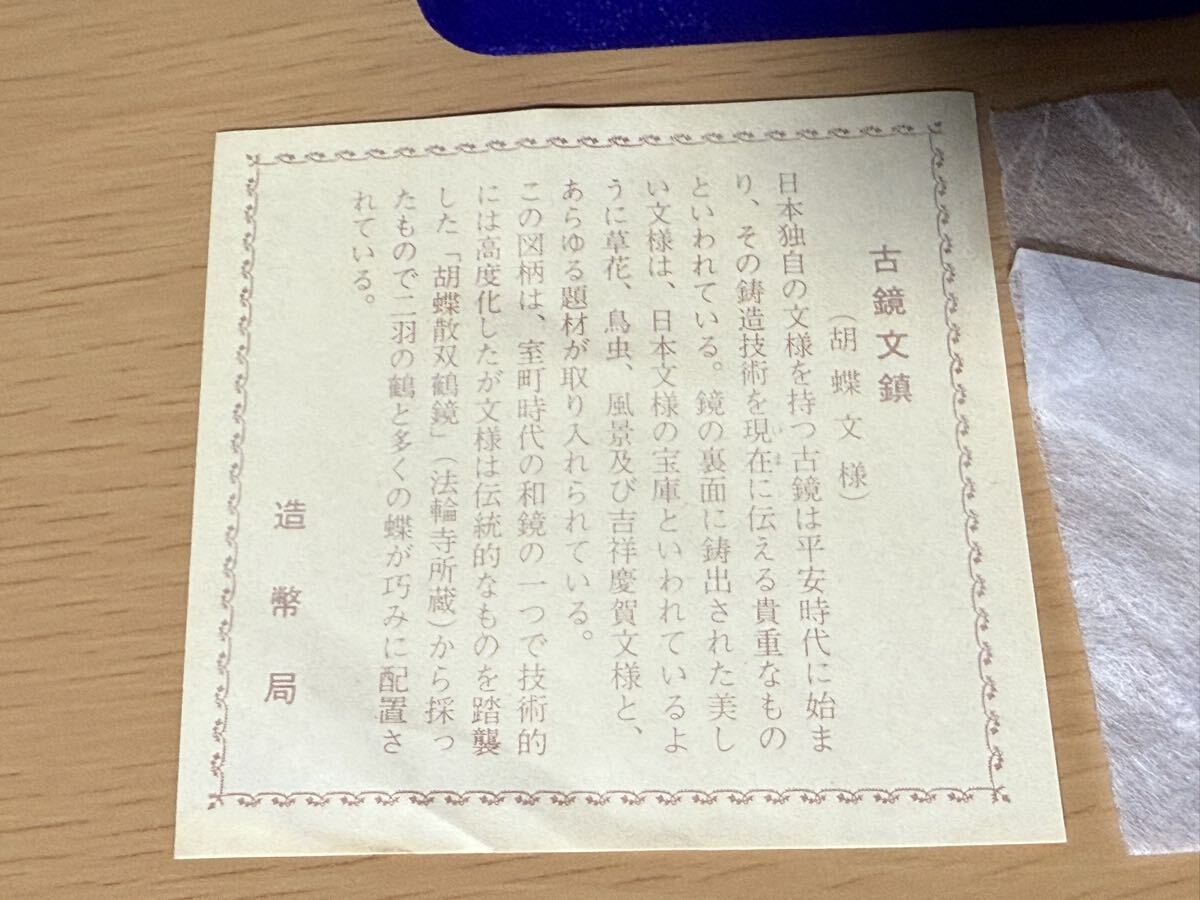 古鏡文鎮
（胡蝶文様）
日本独自の文様を持つ古鏡は平安時代に始ま
り、その鋳造技術を現在に伝える貴重なもの
といわれている。鏡の裏面に鋳出された美し
い文様は、日本文様の宝庫といわれているよ
うに草花、鳥虫、風景及び吉祥慶賀文様と、
あらゆる題材が取り入れられている。
この図柄は、室町時代の和鏡の一つで技術的
には高度化したが文様は伝統的なものを踏襲
した「胡蝶散双鶴鏡」（法輪寺所蔵）から採っ
たもので二羽の鶴と多くの蝶が巧みに配置さ
れている。
造幣局